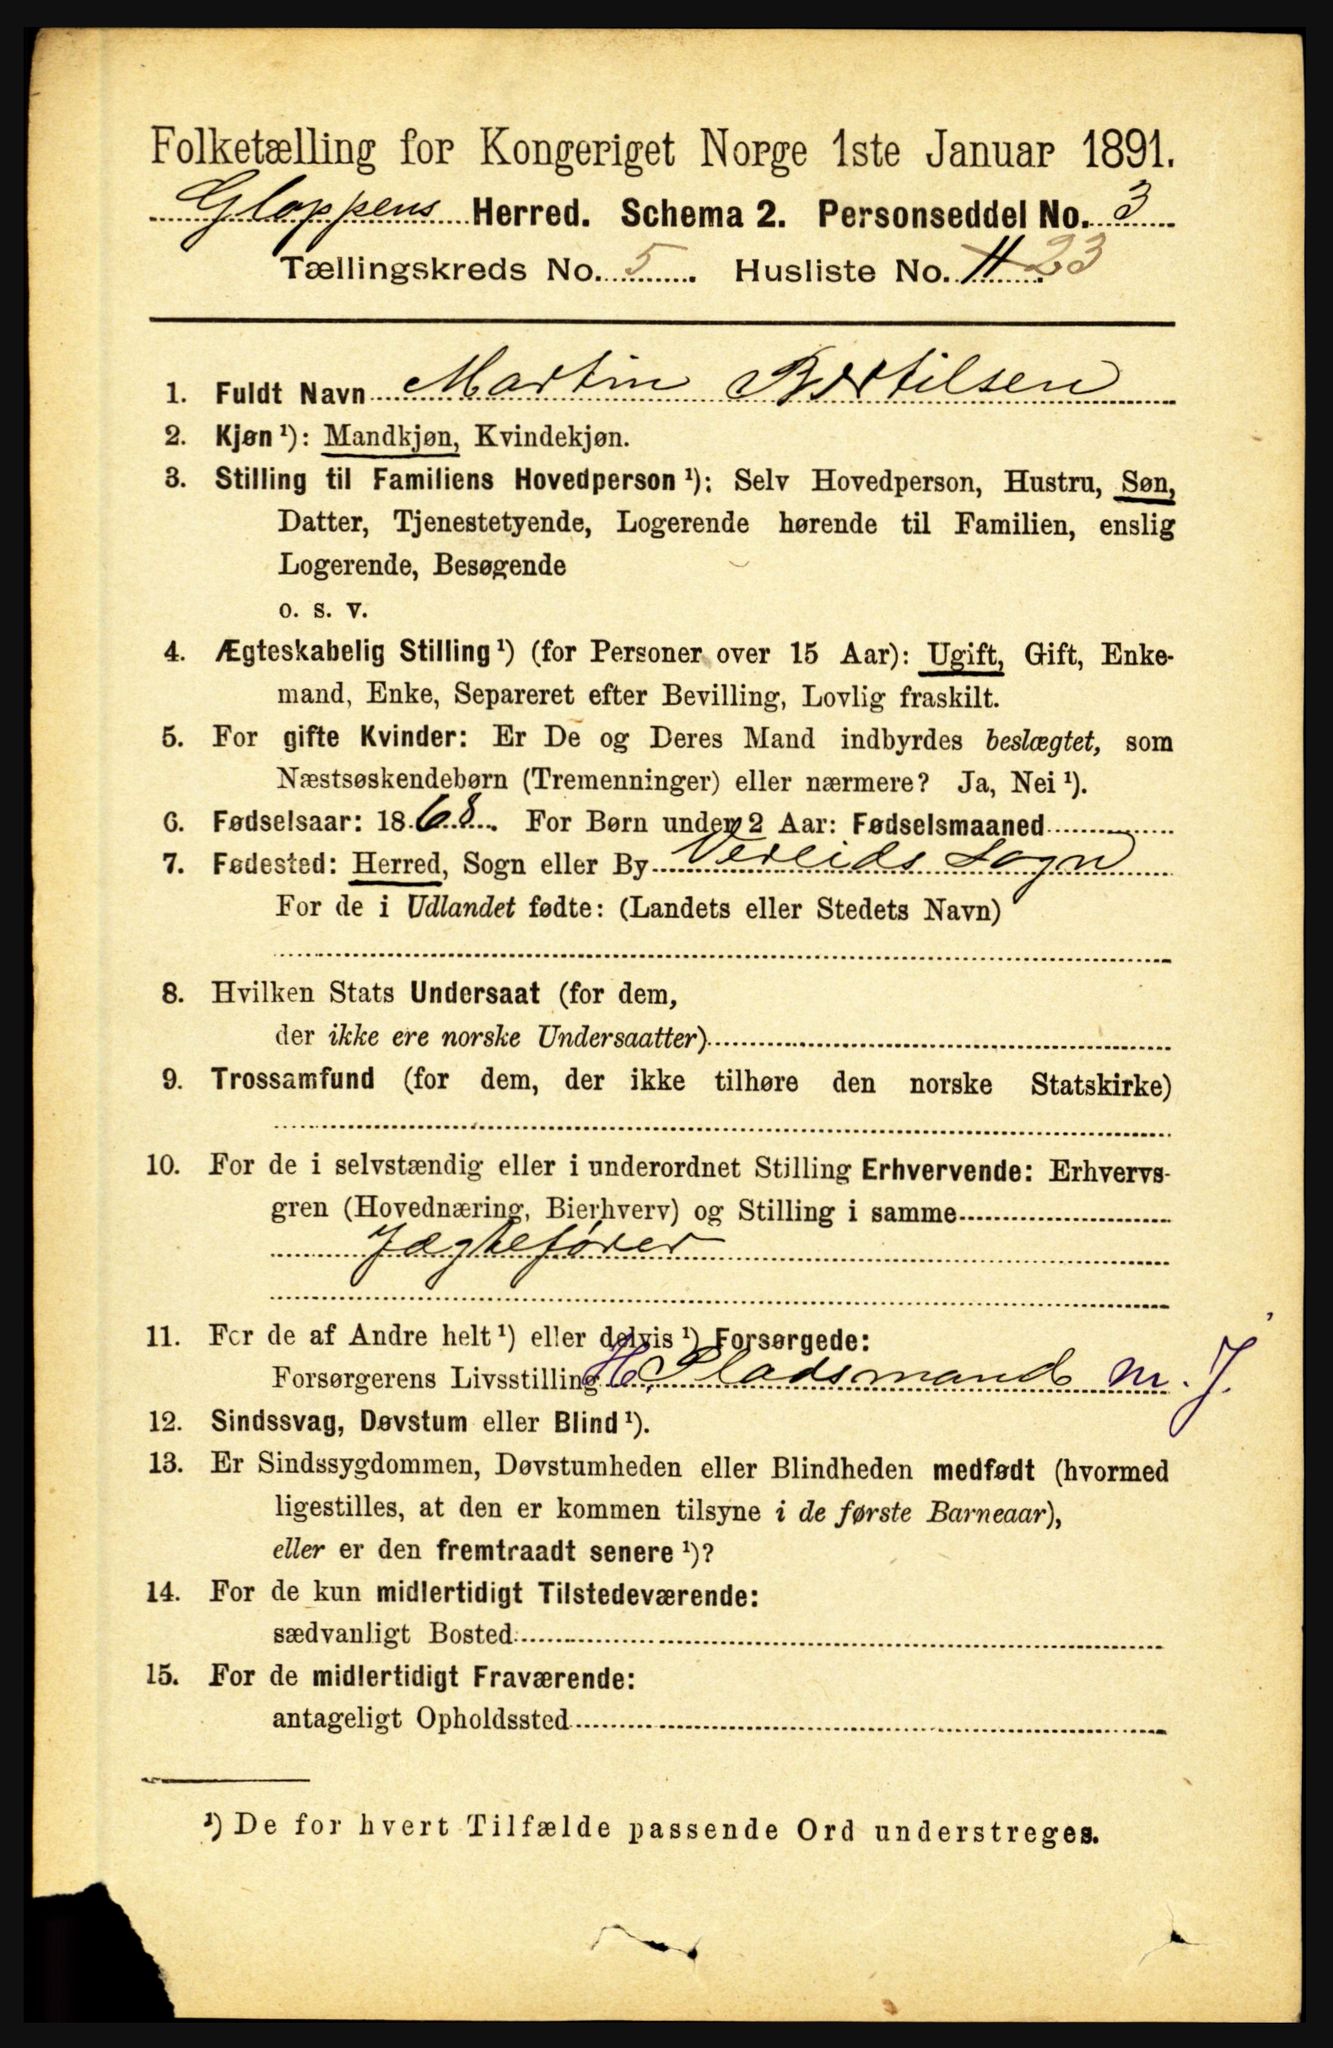 Folketælling for Kongeriget Norge 1ste Januar 1891.
Gloppens Herred. Schema 2. Personseddel No. 3
Tællingskreds No. 5. Husliste No. 11 23
1. Fuldt Navn Martin Bertilsen
2. Kjøn ¹): Mandkjøn, Kvindekjøn.
3. Stilling til Familiens Hovedperson ¹): Selv Hovedperson, Hustru, Søn,
Datter, Tjenestetyende, Logerende hørende til Familien, enslig
Logerende, Besøgende
o. s. v.
4. Ægteskabelig Stilling ¹) (for Personer over 15 Aar): Ugift, Gift, Enke-
mand, Enke, Separeret efter Bevilling, Lovlig fraskilt.
5. For gifte Kvinder: Er De og Deres Mand indbyrdes beslægtet, som
Næstsøskendebørn (Tremenninger) eller nærmere? Ja, Nei ¹).
6. Fødselsaar: 1868. For Børn under 2 Aar: Fødselsmaaned
7. Fødested: Herred, Sogn eller By Vereids Sogn
For de i Udlandet fødte: (Landets eller Stedets Navn)
8. Hvilken Stats Undersaat (for dem,
der ikke ere norske Undersaatter)
9. Trossamfund (for dem, der ikke tilhøre den norske Statskirke)
10. For de i selvstændig eller i underordnet Stilling Erhvervende: Erhvervs-
gren (Hovednæring, Bierhverv) og Stilling i samme
Jægtefører
11. For de af Andre helt ¹) eller delvis ¹) Forsørgede:
Forsørgerens Livsstilling H. Pladsmand m. J.
12. Sindssvag, Døvstum eller Blind ¹).
13. Er Sindssygdommen, Døvstumheden eller Blindheden medfødt (hvormed
ligestilles, at den er kommen tilsyne i de første Barneaar),
eller er den fremtraadt senere ¹)?
14. For de kun midlertidigt Tilstedeværende:
sædvanligt Bosted
15. For de midlertidigt Fraværende:
antageligt Opholdssted
¹) De for hvert Tilfælde passende Ord understreges.